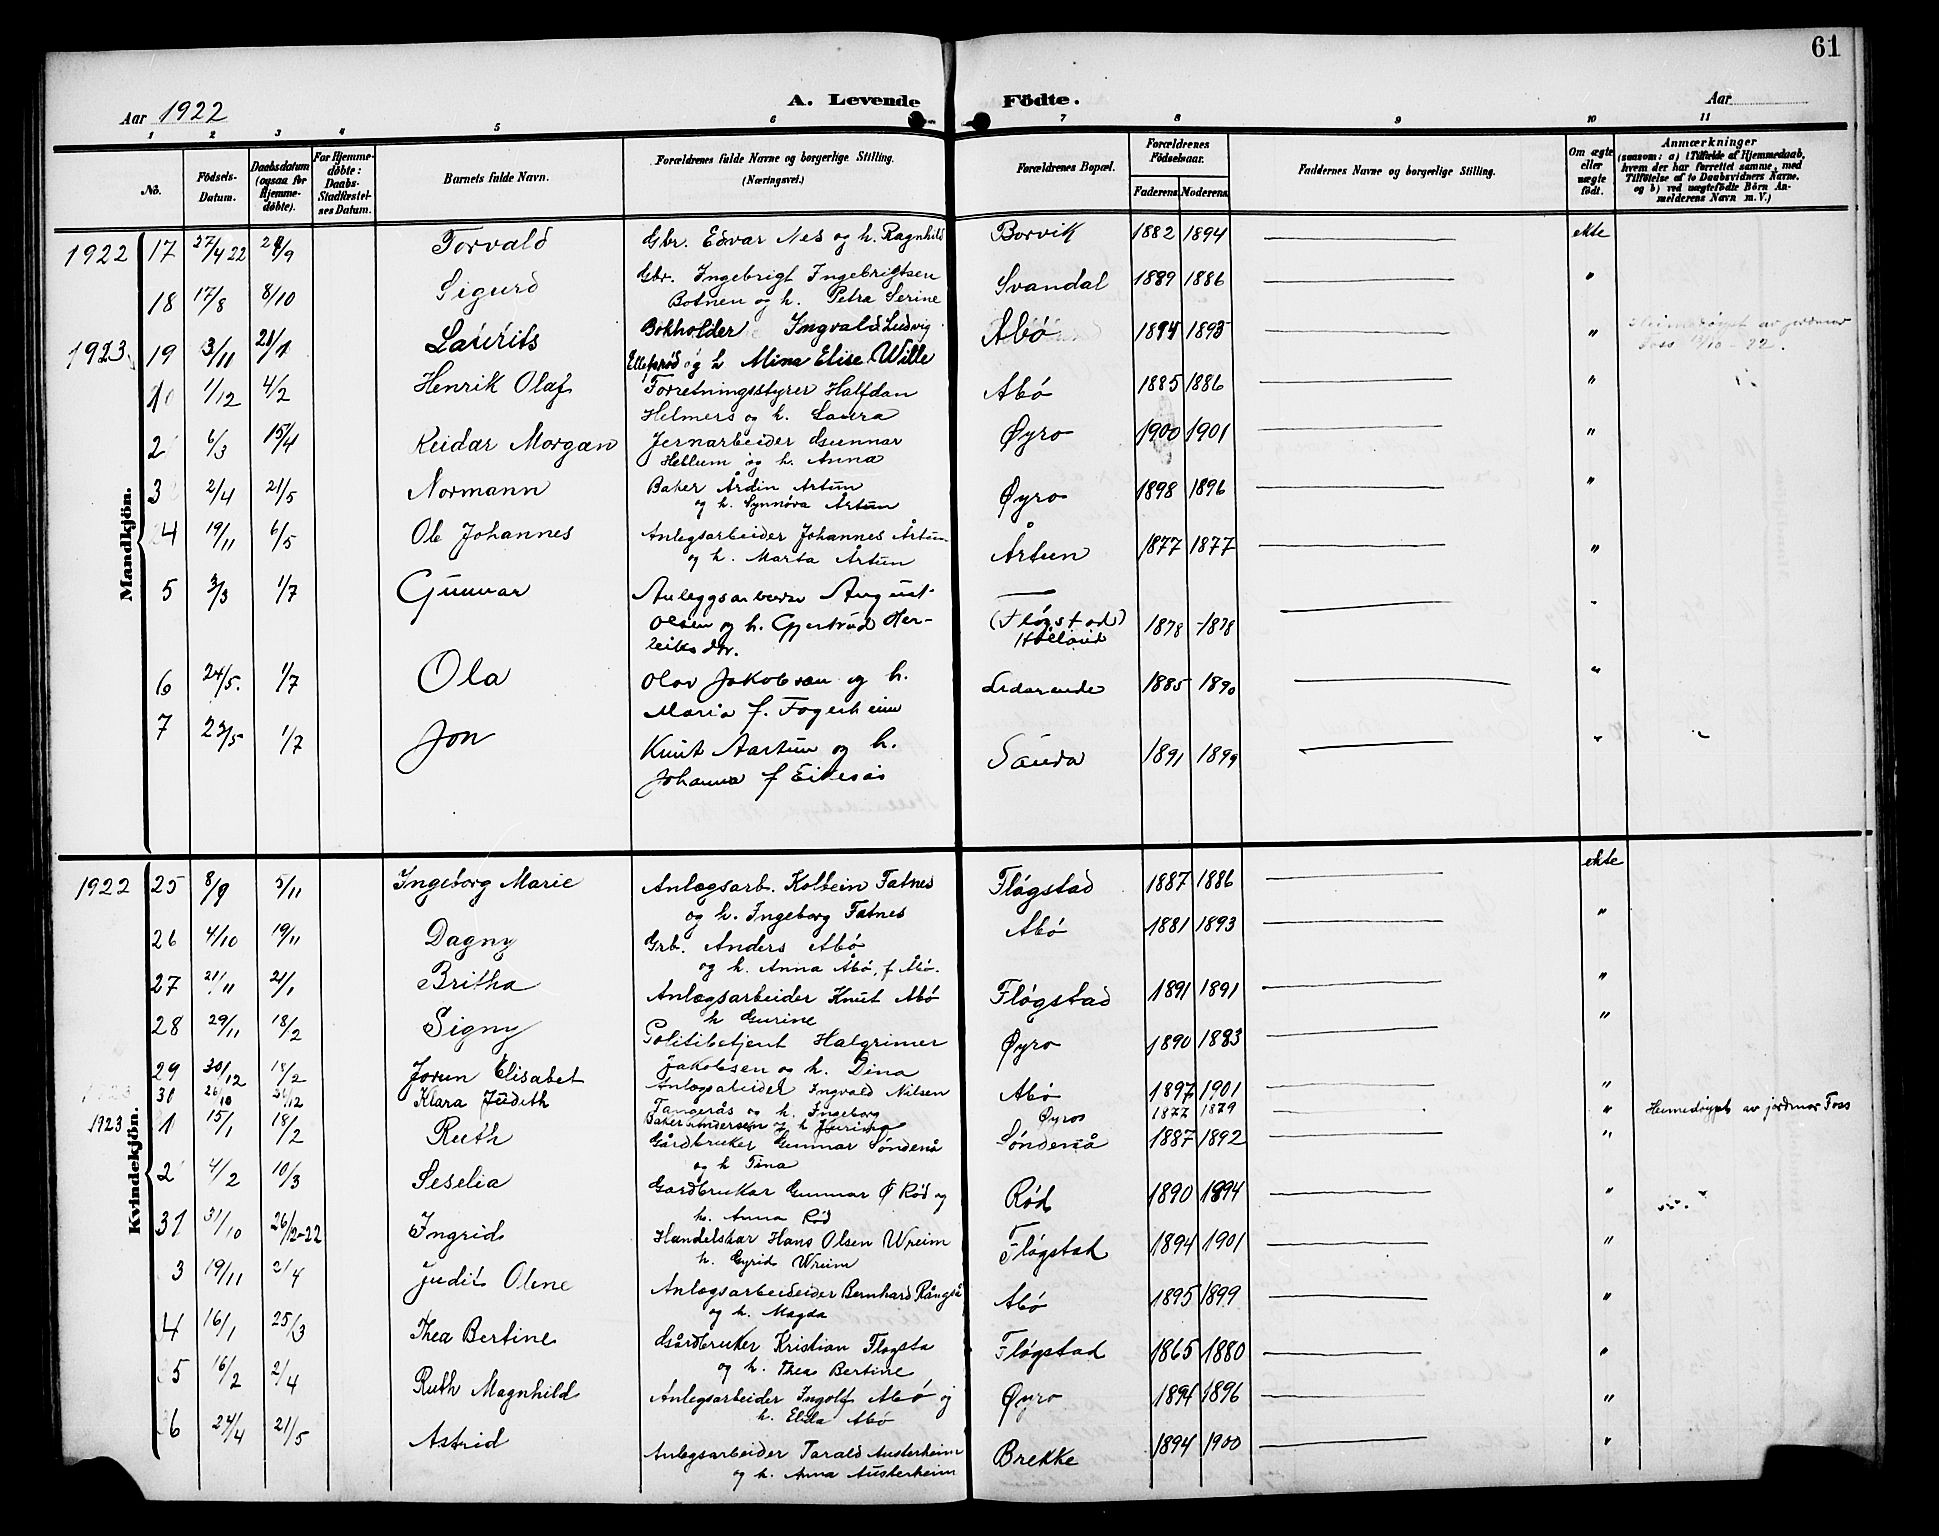 61
A. Levende Födte.
Aar 1922
Aar
1 2 3 4 5 6 7 8 9 10 11
No.
Födsels-Datum.
Daabsdatum (ogsaa for Hjemme-döbte).
For Hjemme-döbte: Daabs-Stadfæstel-ses Datum.
Barnets fulde Navn.
Forældrenes fulde Navne og borgerlige Stilling. (Næringsvei.)
Forældrenes Bopæl.
Forældrenes Födselsaar.
Faderens. Moderens.
Faddernes Navne og borgerlige Stilling.
Om ægte eller uægte födt.
Anmærkninger
(saasom: a) i Tilfælde af Hjemmedaab, hvem der har forrettet samme, med Tilföielse af to Daabsvidners Navne, og b) ved uægtefödte Börn An-melderens Navn m. V.)
Mandkjön.
1922 17 27/4 22 24/9 Torvald Gbr. Edvar Nes og h. Ragnhild Borvik 1882 1894 ekte
18 17/8 8/10 Sigurd Gbr. Ingebrigt Ingebrigtsen Svandal 1889 1886 "
Botnen og h. Petra Serine
1923 19 3/11 21/1 Laurits Bokholder Ingvald Ludvig Åbø 1894 1893 "
Ellefsrød og h Mina Elise Wille
1/12 4/2 Henrik Olaf Forretningsstyrer Halfdan Åbø 1885 1886 "
Helmers og h. Laura
2 6/3 15/4 Reidar Morgan Jernarbeider Gunnar Øyro 1900 1901 "
Heblum og h. Anna
3 2/4 21/5 Normann Baker Årdin Artun Øyro 1898 1896 "
og h. Synnøva Årtun
4 19/11 6/5 Ole Johannes Anlegsarbeider Johannes Årtun Årtun 1877 1877 "
og h. Marta Årtun
5 3/3 1/7 Gunnar Anleggsarbeider August (Fløgstad) 1878 1878 "
Olsen og h. Gjertrud Her- Hølland
leiksdtr.
6 24/5. 1/7 Ola Olav Jakobsen og h. 1885 1890 "
Maria f. Fagerheim
7 23/5 1/7 Jon Knut Aartun og h. Sauda 1891 1899 "
Johanna f Eikesås
Kvindekjön.
1922 25 8/9 5/11 Ingeborg Marie Anlægsarb. Kolbein Fatnes Fløgstad 1887 1886 ekte
og h. Ingeborg Fatnes
26 4/10 19/11 Dagny Grb. Anders Åbø Åbø 1881 1893 "
og h. Anna Åbø, f Åbø.
27 21/11 21/1 Britha Anlægsarbeider Knut Åbø Fløgstad 1891 1891 "
h Gurine
28 29/11 18/2 Signy Politibetjent Halgrimer Øyro 1890 1883 "
Jakobsen og h. Dina
29 30/12 18/2 Jorun Elisabet Anlægsabeider Ingvald Nilsen Åbø 1897 1901 "
Tangerås og h. Ingeborg
30 26/10 Klara Judith Baker Andersen og h Øyro 1877 1879 " Hemedøypt av jordmor Foss
1923 1 15/1 18/2 Ruth Gårdbruker Gunnar Søndenå Søndenå 1887 1892 "
og h Tina
2 4/2 10/3 Seselia Gardbrukar Gunnar Ø Rød og Rød 1890 1894 "
h. Anna Rød
31 31/10 26/12-22 Ingrid Handelskar Hans Olsen Wreim Fløgstad 1894 1901 "
h. Gyrid Wreim
3 19/11 2/4 Judit Oline Anlægsarbeideider Bernhard Rångså Åbø 1895 1899 "
og h. Magda
4 16/1 25/3 Thea Bertine Gårdbruker Kristian Fløgsta Fløgstad 1865 1880 "
og h. Thea Bertine
5 16/2 2/4 Ruth Magnhild Anlegsarbeider Ingolf Åbø og Øyro 1894 1896 "
h. Elida Åbø
6 24/4 21/5 Astrid Anlegsarbeider Tarald Austerheim Brekke 1894 1900 "
og h. Anna Austerheim